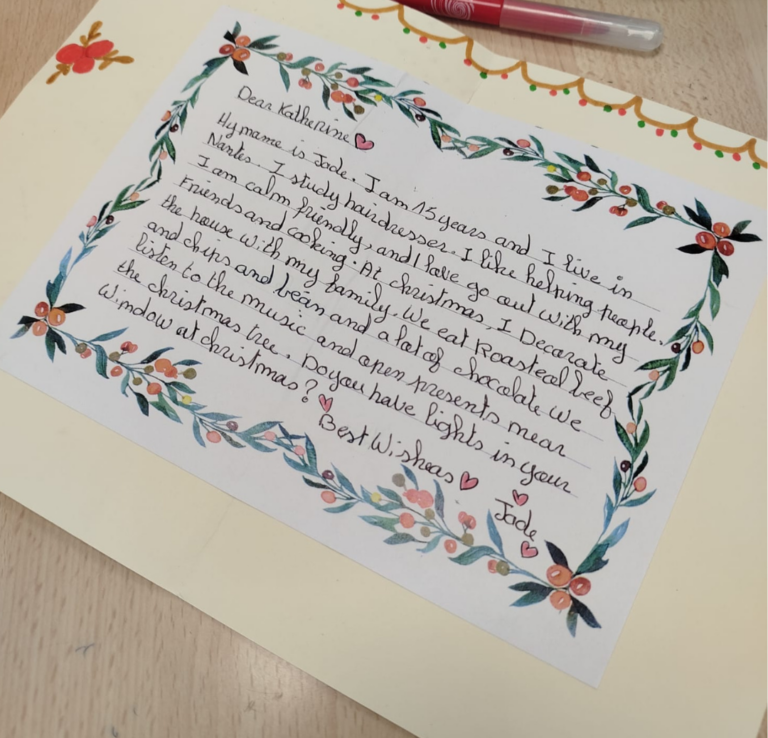 Dear Katherine
My name is Jade. I am 15 years and I live in
Nantes. I study hairdresser. I like helping people.
I am calm friendly, and I love go out with my
Friends and cooking. At christmas, I Decorate
the house with my family. We eat Roasteal beef
and chips and bean and a lot of chocolate we
listen to the music and open presents near
the christmas tree. Do you have lights in your
Window at christmas?
Best Wisheas
Jade